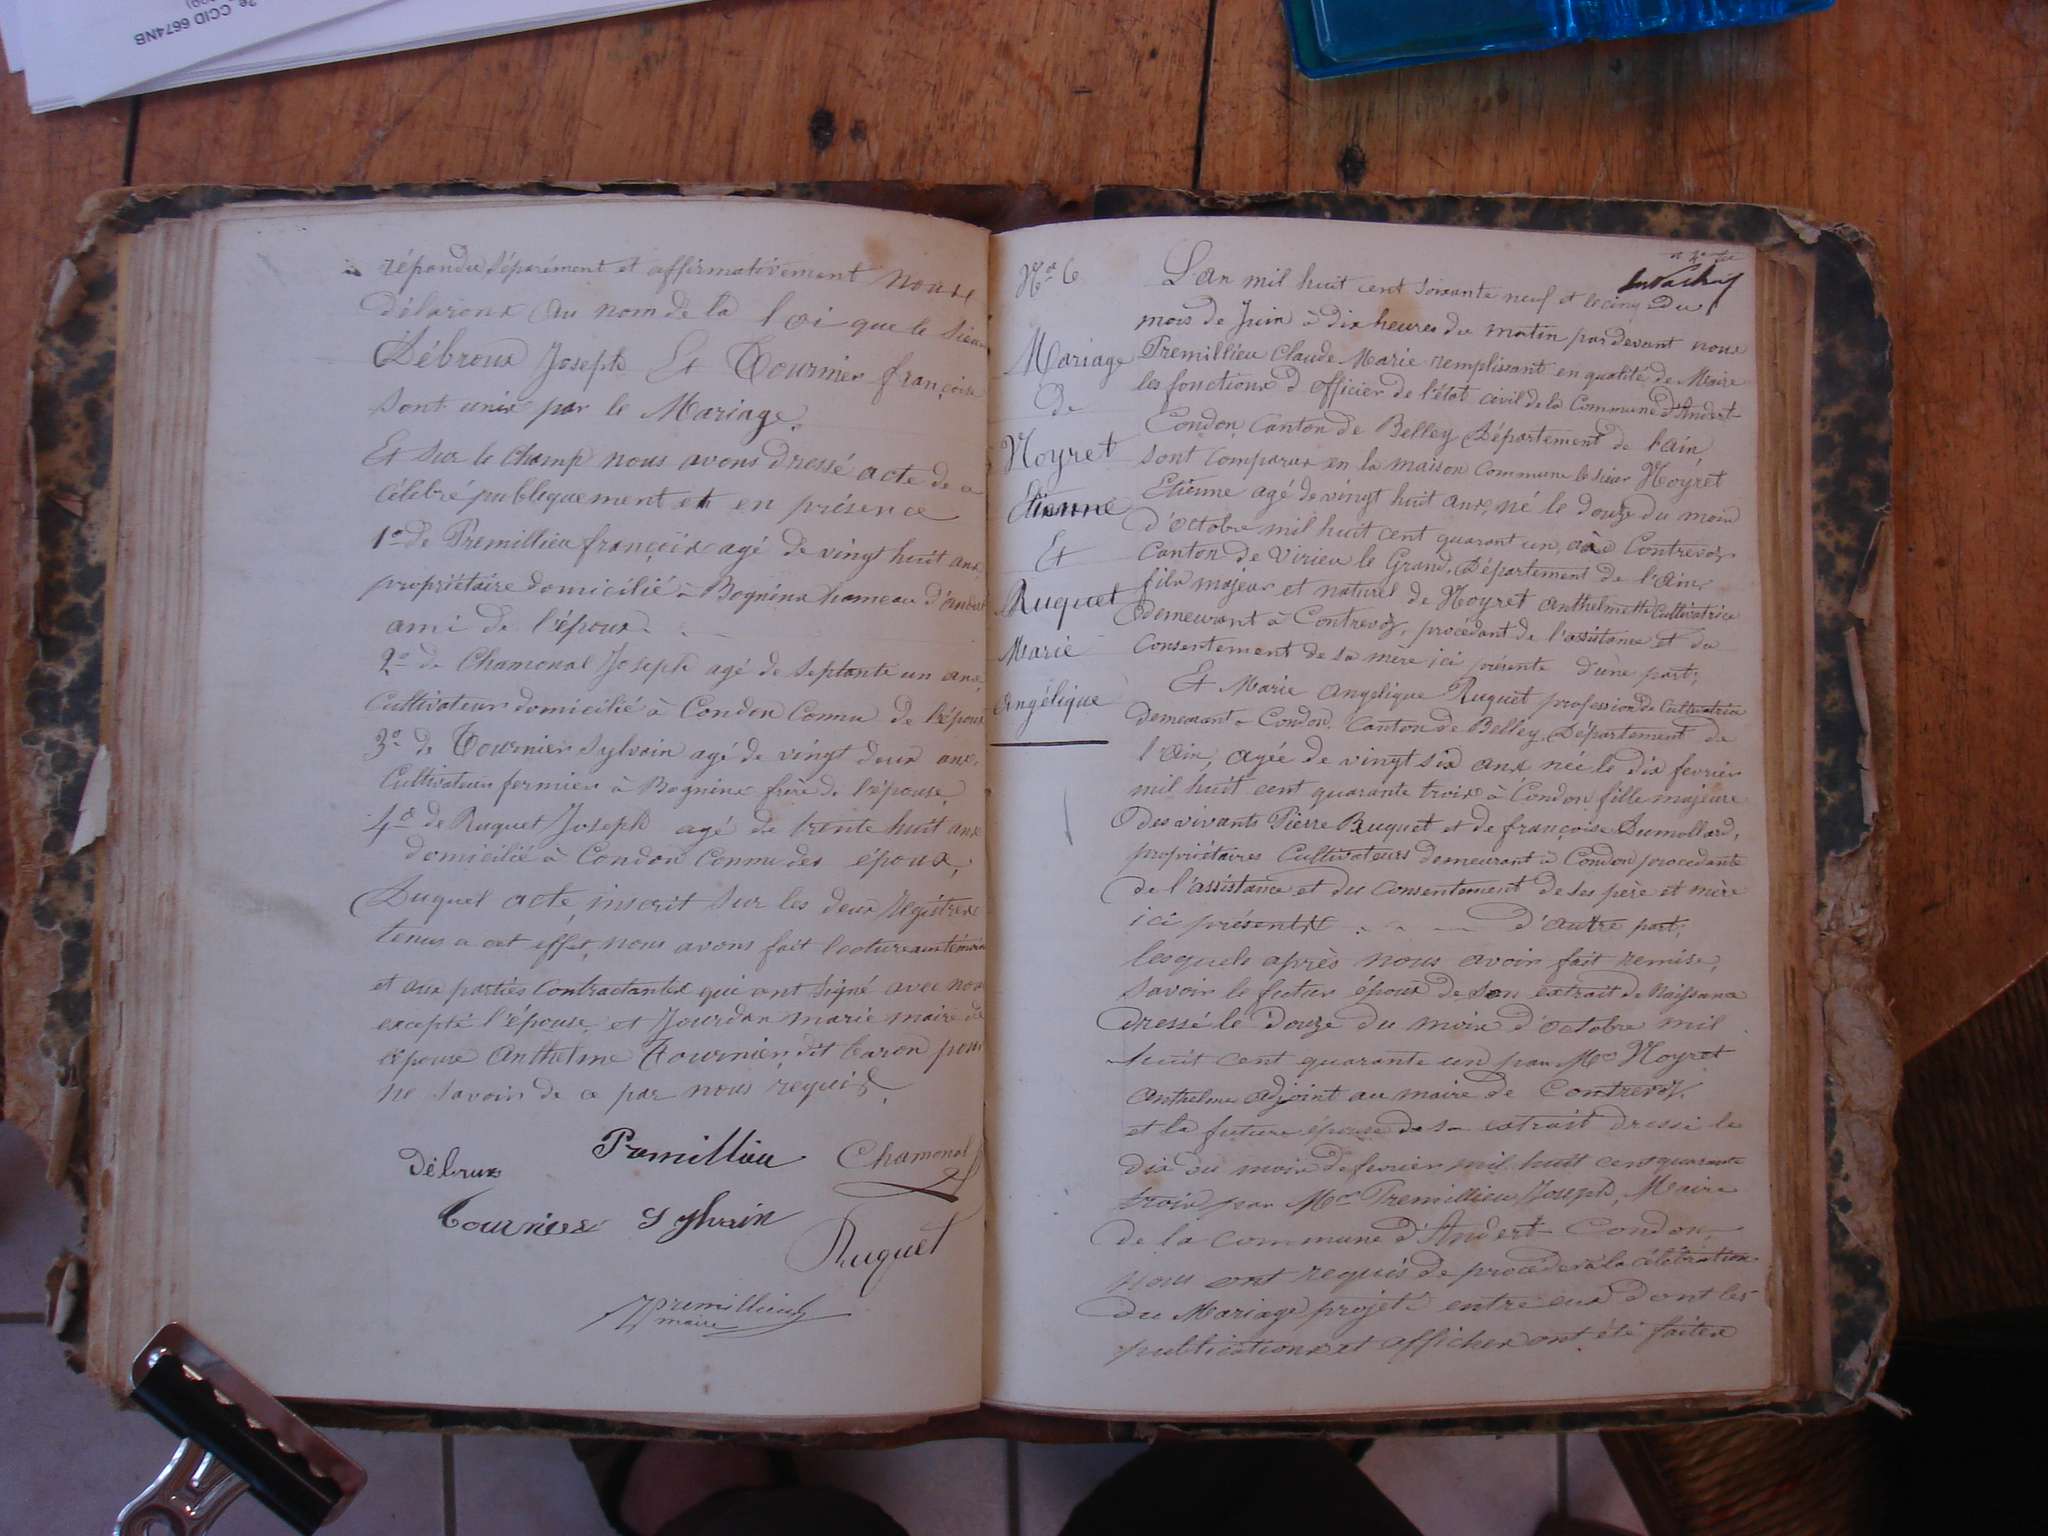 28, CCID 6674NB
répondu séparément et affirmativement nous
déclarons au nom de la loi que le Sieur
Débroux Joseph Et Tournier françoise
sont unis par le Mariage.
Et sur le champ nous avons dressé acte de ce
célébré publiquement et en présence
1º de Premillieu françois agé de vingt huit ans
propriétaire domicilié à Bognins hameau d'andert
ami de l'époux.
2º de Chamonal Joseph agé de septante un ans,
Cultivateur domicilié à Condon Connu de l'époux
3º de Tournier Sylvain agé de vingt deux ans,
Cultivateur fermier à Bognins frère de l'épouse,
4º de Ruguet Joseph agé de trente huit ans
domicilié à Condon Connu des époux,
Duquel acte, inscrit sur les deux registres
tenus a cet effet, nous avons fait lecture aux témoins
et aux parties Contractantes qui ont signé avec nous
excepté l'épouse, et Jourdan marie
épouse Anthelme Tournier dit Caron pour
ne savoir de ce par nous requis.
Débrux Premillieu Chamonal
Tournier Sylvain
Ruguet
premillieu
maire
Nº 6
Mariage
de
Noyret
Etienne
Et
Ruguet
Marie
Angélique
L'an mil huit cent soixante neuf et le cinq du
mois de Juin à dix heures du matin pardevant nous
Premillieu Claude Marie remplissant en qualité de Maire
les fonctions d'officier de l'état civil de la Commune d'Andert-
Condon, Canton de Belley Département de l'ain,
sont comparus en la maison Commune le sieur Noyret
Etienne agé de vingt huit ans, né le douze du mois
d'octobre mil huit cent quarant un, à Contrevoz
Canton de Virieu le Grand, Département de l'Ain
fils majeur et naturel de Noyret Anthelmette Cultivatrice
demeurant à Contrevoz, procédant de l'assistance et du
Consentement de sa mère ici présente d'une part;
Et Marie Angelique Ruguet profession de Cultivatrice
demeurant à Condon, Canton de Belley, Département de
l'Ain, agée de vingt six ans née le dix fevrier
mil huit cent quarante trois à Condon fille majeure
des vivants Pierre Ruguet et de françoise Dumollard,
propriétaires Cultivateurs demeurant à Condon procédante
de l'assistance et du consentement de ses pere et mère
ici présents d'autre part;
lesquels après nous avoir fait remise,
savoir le futur époux de son extrait de Naissance
dressé le douze du mois d'octobre mil
huit cent quarante un par Mr Noyret
Anthelme adjoint au maire de Contrevoz,
et la future épouse de son extrait dressé le
dix du mois de fevrier mil huit cent quarante
trois par Mr Premillieu Joseph, Maire
de la commune d'Andert-Condon,
nous ont requis de procéder à la célébration
du Mariage projeté entre eux dont les
publications et affiches ont été faites